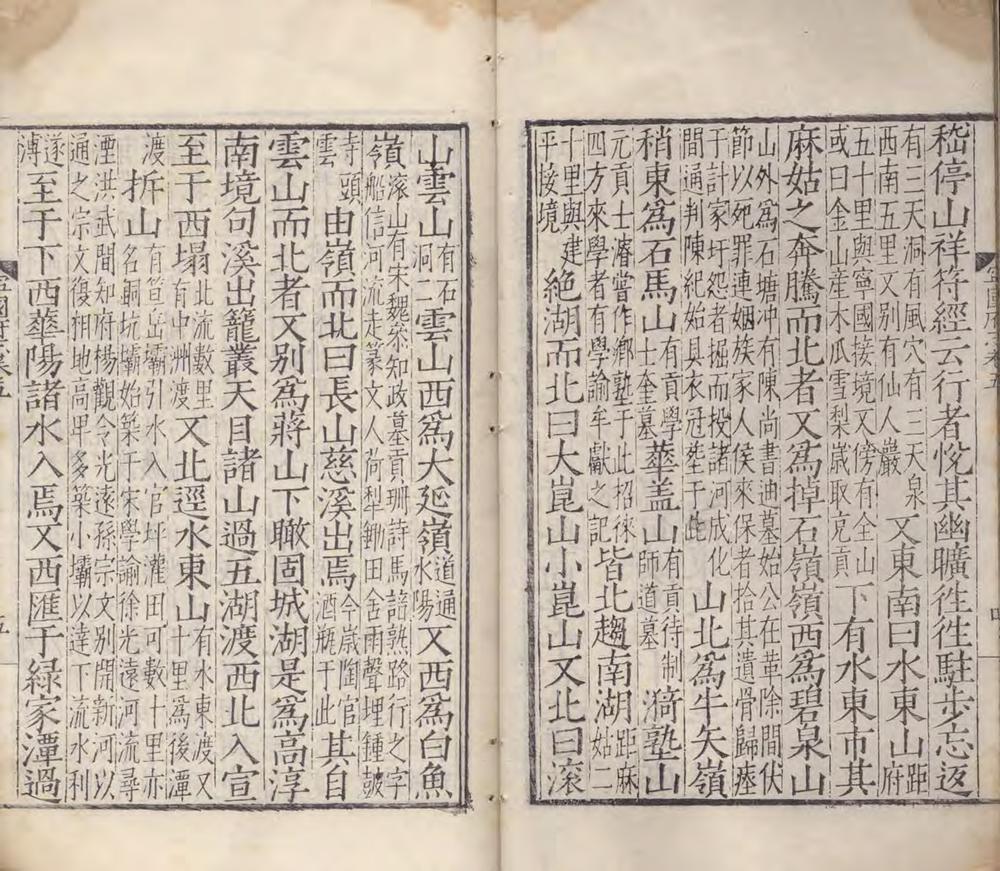 嵇停山祥符經云行者悅其幽曠徃徃駐步忘返
有三天洞有風穴有三天泉
西南五里又別有仙人巖
又東南曰水東山
距
府
五十里與寧國接境又傍有全山
或曰金山産木瓜雪梨嵗取充貢
下有水東市其
麻姑之奔騰而北者又爲掉石嶺嶺西爲碧泉山
山外爲石塘冲有陳尚書迪墓始公在革除間伏
節以死罪連姻族家人侯來保者拾其遺骨歸瘞
于計家圩怨者掘而投諸河成化
間通判陳紀始具衣冠塟于此
山北爲牛矢嶺
稍東爲石馬山
有貢學
士奎墓
華盖山
有貢待制
師道墓
漪塾山
元貢士濬嘗作鄉塾于此招徠
四方來學者有學諭牟巘之記
皆北趨南湖
距麻
姑二
十里與建
平接境
絶湖而北曰大崑山小崑山又北曰滚
山雲山
有石
洞二
雲山西爲大延嶺
道通
水陽
又西爲白魚
嶺
滚山有宋魏叅知政墓貢珊詩馬諳熟路行之字
嶺船信河流走篆文人荷犁鋤田舍雨聲埋鍾皷
寺頭
雲
由嶺而北曰長山慈溪出焉
今嵗陶官
酒瓶于此
其自
雲山而北者又别爲蔣山下瞰固城湖是爲高淳
南境句溪出籠叢天目諸山過五湖渡西北入宣
至于西塌
北流數里
有中洲渡
又北逕水東山
有水東渡又
十里爲後潭
渡
柝山
有笪岳壩引水入官坪灌田可數十里亦
名銅坑壩始築于宋學諭徐光遠河流尋
湮洪武間知府楊觀令光遠孫宗文别開新河以
通之宗文復相地高卑多築小壩以達下流水利
遂
溥
至于下西華陽諸水入焉又西匯于綠家潭過
五